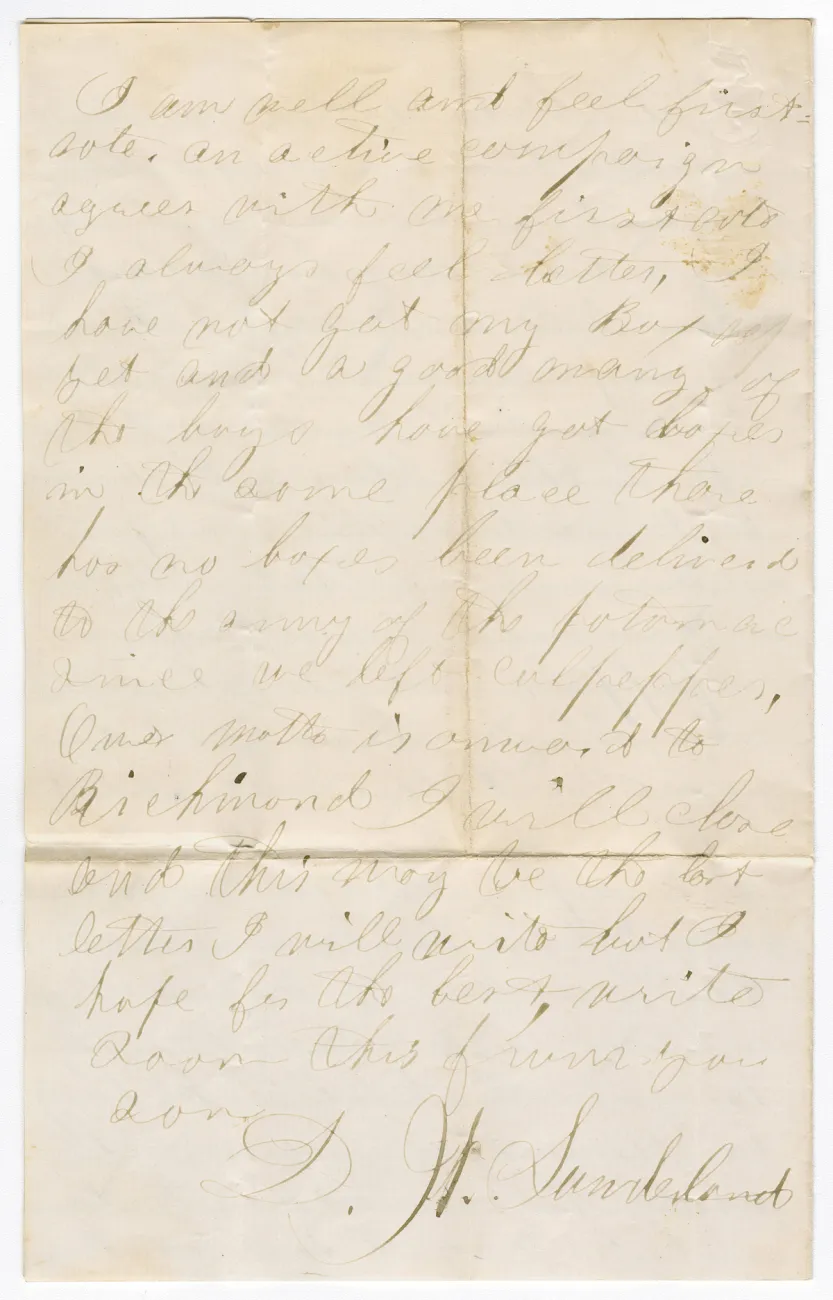 I am well and feel first=
rate. an active campaign
agrees with me first rate
I always feel better, I
have not got my Box
yet and a good many of
the boys have got boxes
in the same place there
has no boxes been deliverd
to the army of the potomac
since we left culpepper,
Ouer motto is onward to
Richmond I will close
and this may be the last
letter I will write but I
hope for the best, write
soon this from you
son
D. H. Sunderland